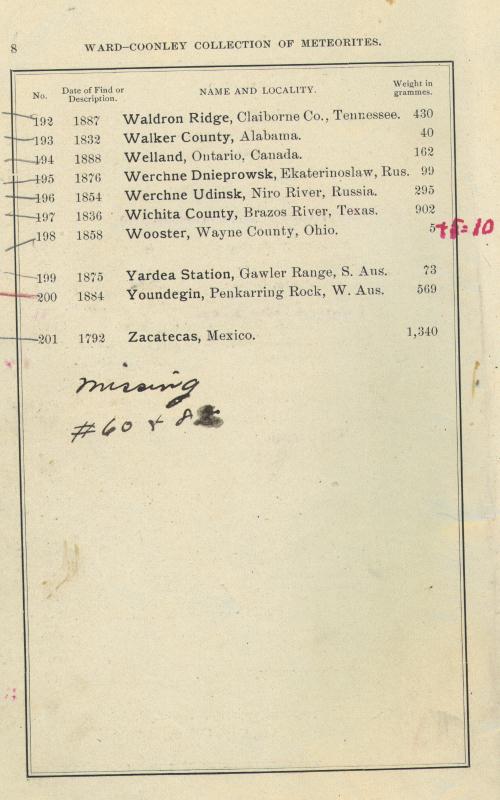 8 WARD–COONLEY COLLECTION OF METEORITES.
No. Date of Find or Description. NAME AND LOCALITY. Weight in grammes.
192 1887 Waldron Ridge, Claiborne Co., Tennessee. 430
193 1832 Walker County, Alabama. 40
194 1888 Welland, Ontario, Canada. 162
195 1876 Werchne Dnieprowsk, Ekaterinoslaw, Rus. 99
196 1854 Werchne Udinsk, Niro River, Russia. 295
197 1836 Wichita County, Brazos River, Texas. 902
198 1858 Wooster, Wayne County, Ohio. 5 +5=10
199 1875 Yardea Station, Gawler Range, S. Aus. 73
200 1884 Youndegin, Penkarring Rock, W. Aus. 569
201 1792 Zacatecas, Mexico. 1,340
missing
#60 + 8